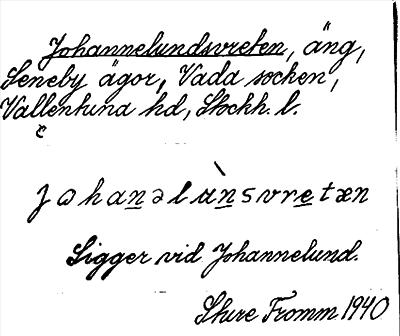 Johannelundsvreten, äng,
Seneby ägor, Vada socken,
Vallentuna hd, Stockh. l.
c
johanəlùnsvretæn
Ligger vid Johannelund.
Sture Fromm 1940